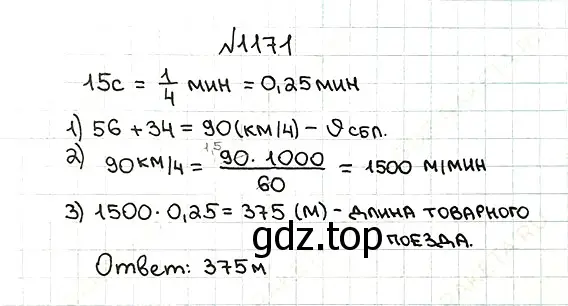 №1171
15с = 1/4 мин = 0,25 мин
1) 56 + 34 = 90 (км/ч) - υ сбл.
2) 90 км/ч = 90 · 1000 / 60 = 1500 м/мин
1,5
3) 1500 · 0,25 = 375 (м) - длина товарного
поезда.
gdz.top
Ответ: 375 м